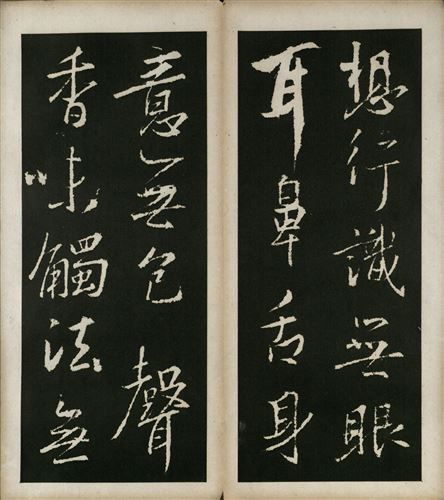 想行識無眼
耳鼻舌身
意無色聲
香味觸法無